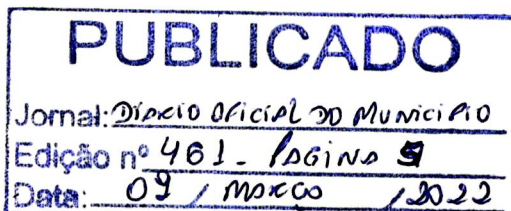 PUBLICADO
Jornal: DIARIO OFICIAL DO MUNICIPIO
Edição nº 461 - PAGINA
Data: 09 / MARÇO / 2022